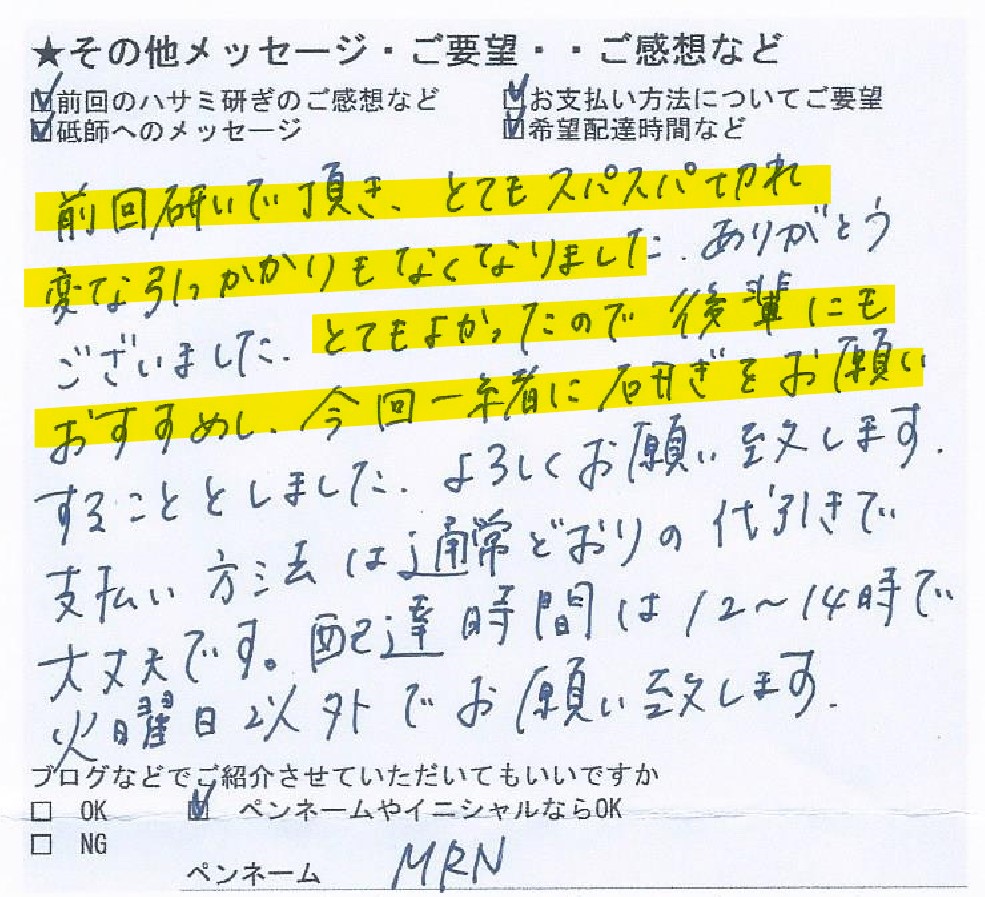 ★その他メッセージ・ご要望・・ご感想など
☑前回のハサミ研ぎのご感想など ☑お支払い方法についてご要望
☑砥師へのメッセージ ☑希望配達時間など
前回研いで頂き、とてもスパスパ切れ
変な引っかかりもなくなりました.ありがとう
ございました.とてもよかったので後輩にも
おすすめし、今回一緒に研ぎをお願い
することとしました.よろしくお願い致します.
支払い方法は通常どおりの代引きで
大丈夫です。配達時間は12〜14時で
火曜日以外でお願い致します.
ブログなどでご紹介させていただいてもいいですか
□ OK ☑ ペンネームやイニシャルならOK
□ NG
ペンネーム MRN